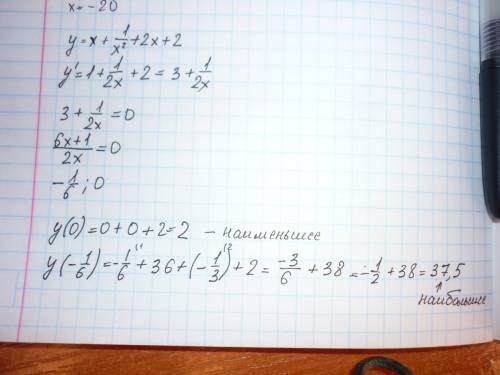 x = -20
y = x + 1/x² + 2x + 2
y' = 1 + 1/2x + 2 = 3 + 1/2x
3 + 1/2x = 0
6x+1/2x = 0
-1/6 ; 0
y(0) = 0 + 0 + 2 = 2 - наименьшее
y(-1/6) = -1/6 + 36 + (-1/3) + 2 = -3/6 + 38 = -1/2 + 38 = 37,5
наибольшее